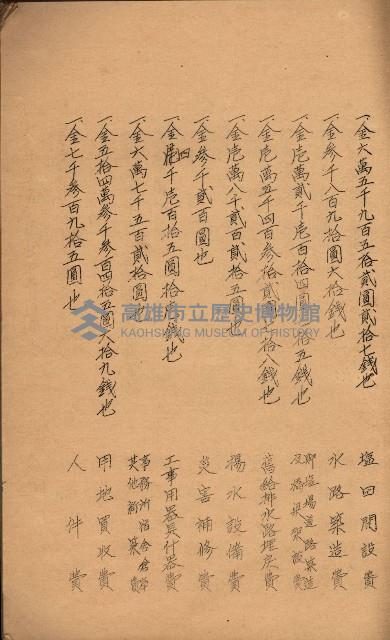 一、金六萬五千九百五拾貳圓貳拾七錢也 塩田開設費
一、金參千八百九拾圓六拾錢也 水路築造費
一、金壱萬貳千壱百拾四圓拾五錢也 塩場道路築造及橋梁架設費
一、金壱萬五千四百參拾貳圓拾八錢也 舊給排水路埋戻費
一、金壱萬八千貳百貳拾五圓也 揚水設備費
一、金參千貳百圓也 災害補修費
一、金四千壱百拾五圓拾壱錢也 工事用器具什器費
一、金六萬七千五百貳拾圓也 事務所宿舍倉庫其他新築費
一、金五拾四萬參千參百四拾五圓六拾九錢也 用地買收費
一、金七千參百九拾五圓也 人件費
高雄市立歷史博物館
KAOHSIUNG MUSEUM OF HISTORY